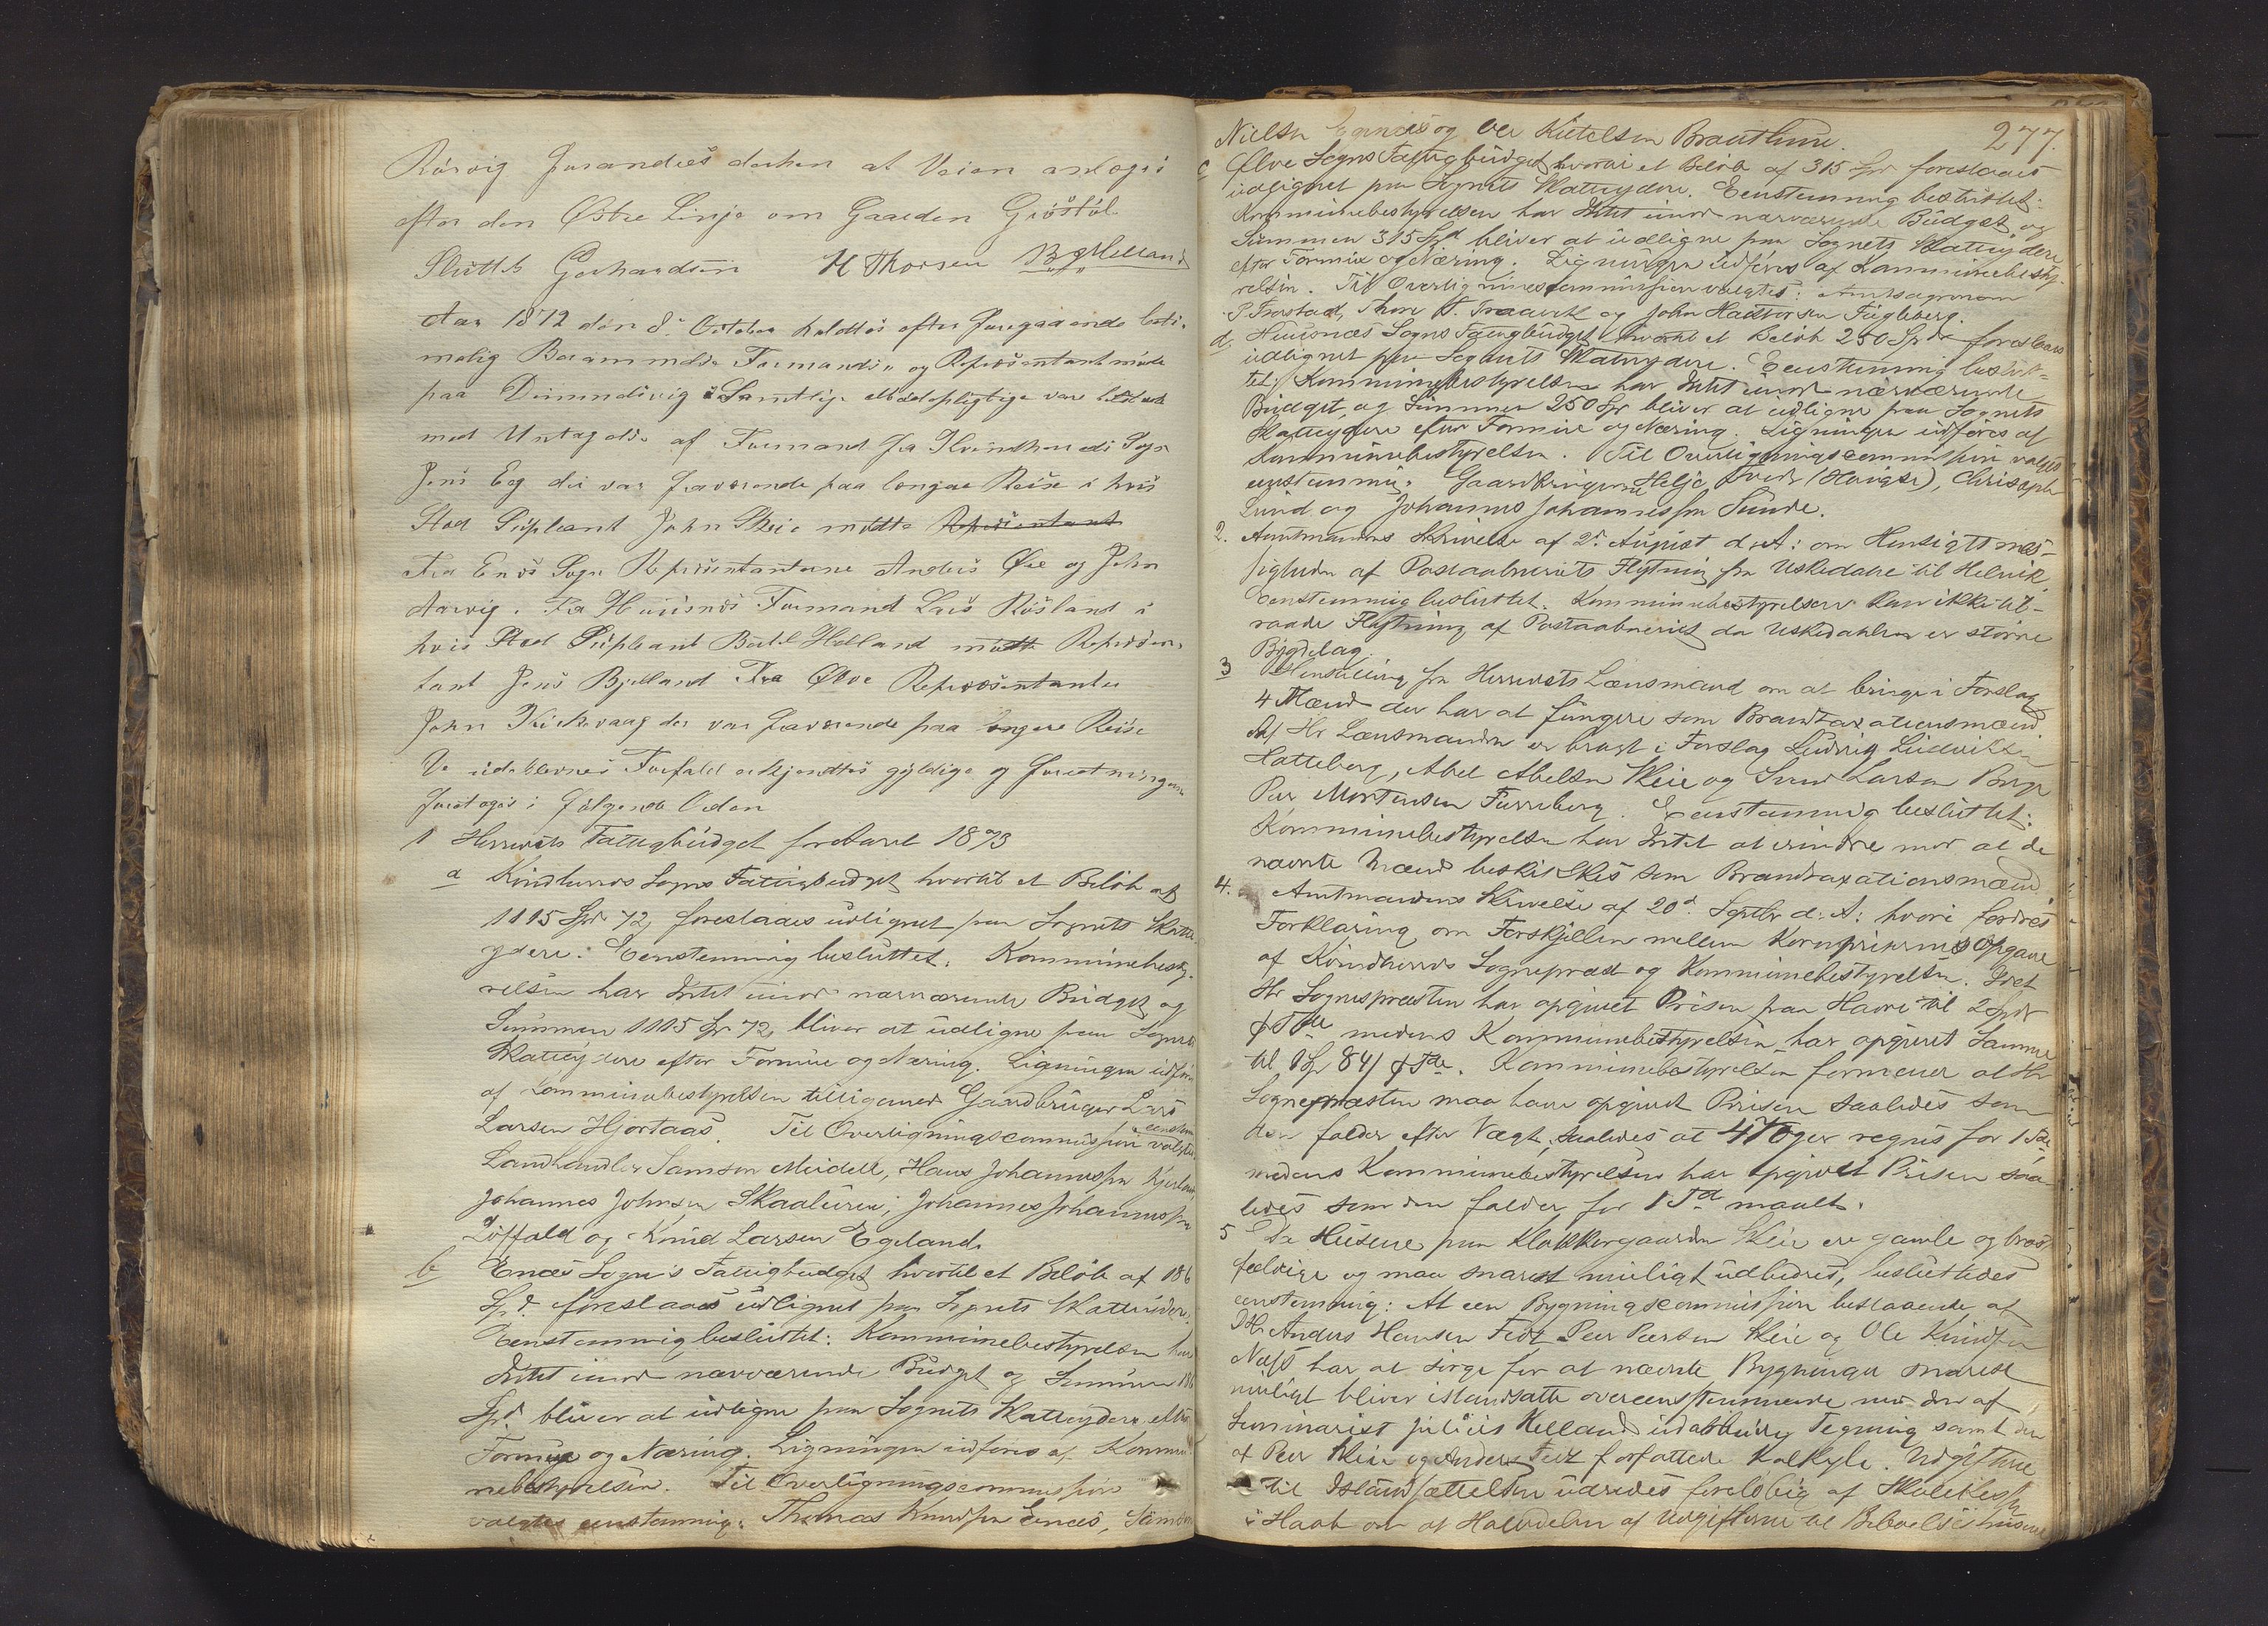 Rörvig foran dets at Veien anlæges
efter den Östre Linje om Gaarden Gröstöl
Sluttet Gerhardsen H Thorsen B Mælland
Aar 1872 den 8de October holdtes efter foregaaende lovli-
malig Berammelse Formands- og Repræsentantmöde
paa Dimmelsvig. Samtlige mödepligtige var
med Untagelse af Formand fra Kvindherreds Sogn
Jens Eeg der var fraværende paa længere Reise i hvis
Sted Supleant John Skeie mödte
Fra Enæs Sogn Repræsentanterne Anders Øie og John
Arvig. Fra Huusnæs Formand Lars Røsland i
hvis Sted Supleant Bertel Helland mödte Repræsen-
tant Jens Bjelland Fra Ølve Repræsentanten
John Kirkevaag der var fraværende paa længere Reise
De udeblevnes Forfald erkjendtes gyldige og Foretningen
foretoges i fölgende Orden
1 Herredets Fattigbudget for Aaret 1873
a Kvindherreds Sogns Fattigbudget hvortil et Belöb af
1115 Spd 72 foreslaaes udlignet paa Sognets Skatte-
ydere: Eenstemmig besluttet. Kommunebesty-
relsen har Intet imod nærværende Budget og
Summen 1115 Spd 72 bliver at udligne paa Sognets
Skatteydere efter Formue og Næring. Ligningen udföres
af Kommunebestyrelsen tilligemed Gaardbruger Lars
Larsen Hjortaas. Til Overligningscommission valgtes eenstem
Landhandler Samson Meidell, Hans Johannessen Kjerland,
Johannes Johnsen Skaaluren, Johannes Johannessen
Löffald og Knud Larsen Egeland.
b Enæs Sogn's Fattigbudget hvortil et Belöb af 186
Spd. foreslaaes udlignet paa Sognets Skatteydere.
Eenstemmig besluttet: Kommunebestyrelsen har
Intet imod nærværende Budget og Summen 186
Spd. bliver at udligne paa Sognets Skatteydere efter
Formue og Næring. Ligningen udföres af Kommu-
nebestyrelsen. Til Overligningscommission
valgtes eenstemmig: Thomas Knudsen Enæs,
277.
Nielsen og Ole Kittelsen Brauthun.
c Ølve Sogns Fattigbudget hvori et Belöb af 315 Spd foreslaaes
udlignet paa Sognets Skatteydere. Eenstemmig besluttet:
Kommunebestyrelsen har Intet imod nærværende Budget, og
Summen 315 Spd bliver at udligne paa Sognets Skatteydere
efter Formue og Næring. Ligningen udföres af Kommunebesty-
relsen. Til Overligningscommission valgtes: Amtsagronom
P. Frostad, Thore T. Traavik og John Haldorsen Fugleberg.
d. Huusnæs Sogns Fattigbudget hvortil et Belöb 250 Spd foreslaaes
udlignet paa Sognets Skatteydere. Eenstemmig beslut-
tet: Kommunebestyrelsen har Intet imod nærværende
Budget, og Summen 250 Spd bliver at udligne paa Sognets
Skatteydere efter Formue og Næring. Ligningen udföres af
Kommunebestyrelsen. Til Overligningscommission valgtes
eenstemmig: Gaardbrugerne Helje Tveit (Haugse), Christopher
Lund og Johannes Johannessen Sunde.
2. Amtmandens Skrivelse af 2d August d. A: om Hensigtsmæs-
sigheden af Postaabneriets Flytning fra Uskedalen til Helvik
eenstemmig besluttet. Kommunebestyrelsen kan ikke til-
raade Flytning af Postaabneriet da Uskedalen er större
Bygdelag.
3 Henstilling fra Herredets Lænsmand om at bringe i Forslag
4 Mænd der har at fungere som Brandtaxationsmænd.
Af Hr Lænsmanden er bragt i Forslag Ludvig Ludviksen
Hatteberg, Abel Abelsen Skeie og Svend Larsen Berge
Peer Mortensen Furreberg. Eenstemmig besluttet:
Kommunebestyrelsen har Intet at erindre mod at de
nævnte Mænd beskikkes som Brandtaxationsmænd.
4. Amtmandens Skrivelse af 20d Septbr d. A: hvori fordres
Forklaring om Forskjellen mellem Kornprisernes Opgave
af Kvindherreds Sognepræst og Kommunebestyrelsen. Idet
Hr Sognepræsten har opgivet Prisen paa Havre til 2 Spd
pr Tde medens Kommunebestyrelsen har opgivet Samme
til 1 Spd 84 / pr Tde. Kommunebestyrelsen formener at Hr
Sognepræsten maa have opgivet Prisen saaledes som
den falder efter Vægt, saaledes at 4 Voger regnes for 1 Tde
medens Kommunebestyrelsen har opgivet Prisen saa-
ledes som den falder for 1 Td maalt.
5 Da Husene paa Klokkergaarden Skeie ere gamle og bröst-
fældige og maa snarest muligt udbedres, besluttedes
eenstemmig: At een Bygningscommission bestaaende af
DHr. Anders Hansen Feet Peer Peersen Skeie og Ole Knudsen
Næss har at sörge for at nævnte Bygninger snarest
muligt bliver istandsatte overeensstemmende med den af
Seminarist Julius Helland udarbeidet Tegning samt den
af Peer Skeie og Anders Feet forfattede Kalkyle. Udgifterne
til Istandsættelsen udredes forelöbig af Skolekassen
i Haab om at Halvdelen af Udgifterne til Beboelseshuset